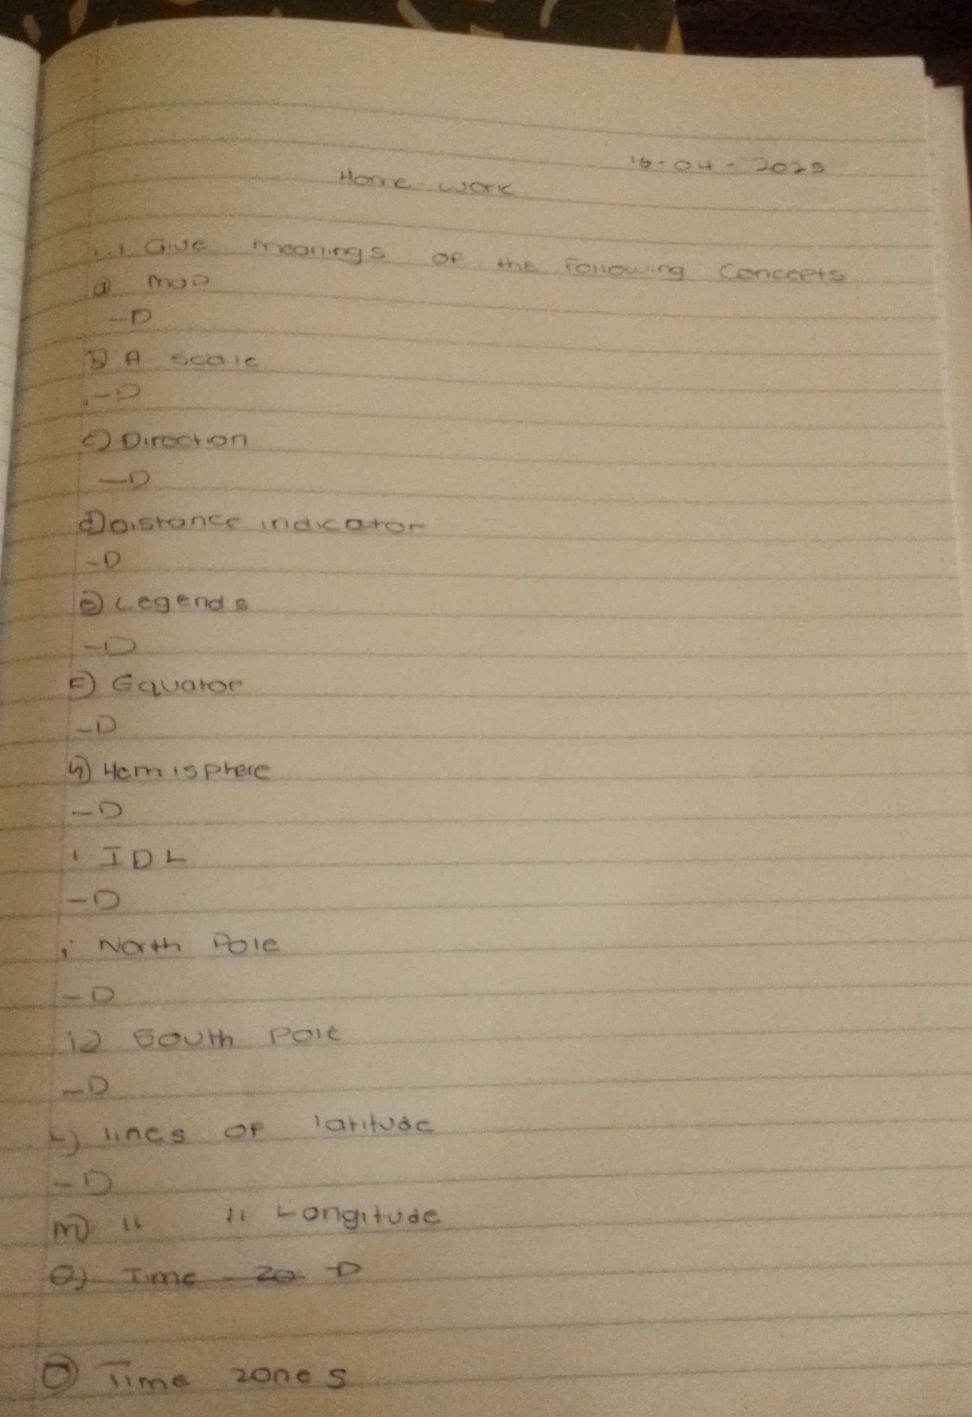 16-04-2025
Home work
1.1 Give meanings of the following concepts
a) map
–D
b) A scale
–D
c) Direction
–D
d) Distance indicator
–D
e) Legends
–D
F) Equator
–D
h) Hemisphere
–D
i IDL
–D
j North Pole
–D
k) South Pole
–D
L) lines OF latitude
–D
m) " " Longitude
O) Time zo –D
O Time zones